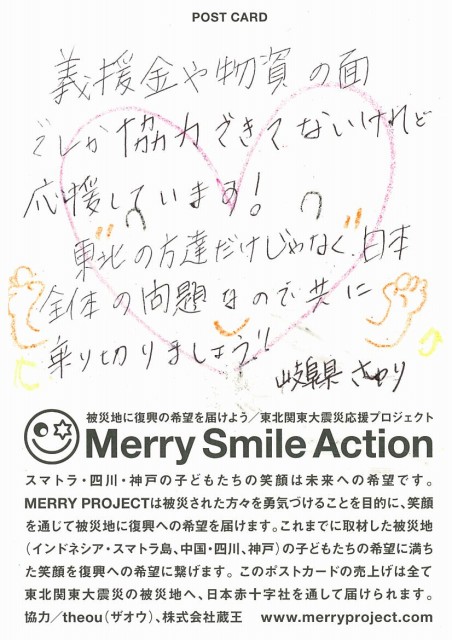 POST CARD
義援金や物資の面
でしか協力できてないけれど
応援しています!
東北の方達だけじゃなく日本
全体の問題なので共に
乗り切りましょう!!
岐阜県 さゆり
被災地に復興の希望を届けよう/東北関東大震災応援プロジェクト
Merry Smile Action
スマトラ・四川・神戸の子どもたちの笑顔は未来への希望です。
MERRY PROJECTは被災された方々を勇気づけることを目的に、笑顔
を通じて被災地に復興への希望を届けます。これまでに取材した被災地
(インドネシア・スマトラ島、中国・四川、神戸)の子どもたちの希望に満ち
た笑顔を復興への希望に繋げます。このポストカードの売上げは全て
東北関東大震災の被災地へ、日本赤十字社を通して届けられます。
協力/theou(ザオウ)、株式会社蔵王 www.merryproject.com